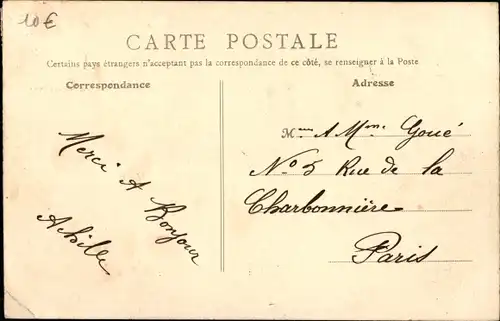 10€
CARTE POSTALE
Certains pays étrangers n'acceptant pas la correspondance de ce côté, se renseigner à la Poste
Correspondance
Merci A Bonjour
Achille
Adresse
M me A Mme Goué
No 5 Rue de la
Charbonnière
Paris